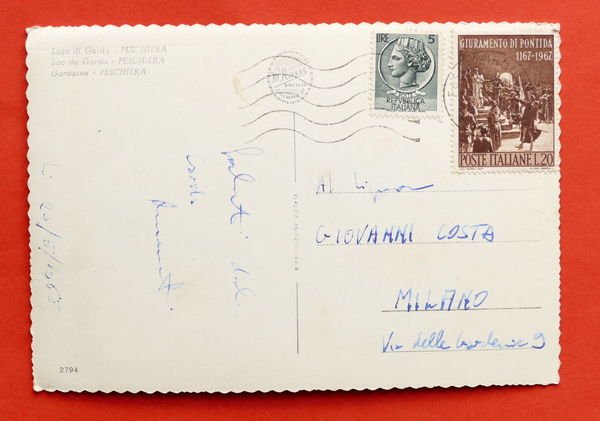 Lago di Garda - PESCHIERA
Lac de Garda - PESCHIERA
Gardasee - PESCHIERA
LIRE 5
POSTE
REPVBBLICA
ITALIANA
GIURAMENTO DI PONTIDA
1167-1967
POSTE ITALIANE L.20
Saluti dal
Garda
RIPRODUZIONE VIETATA
Al Signor
GIOVANNI COSTA
MILANO
Via delle 9
2794